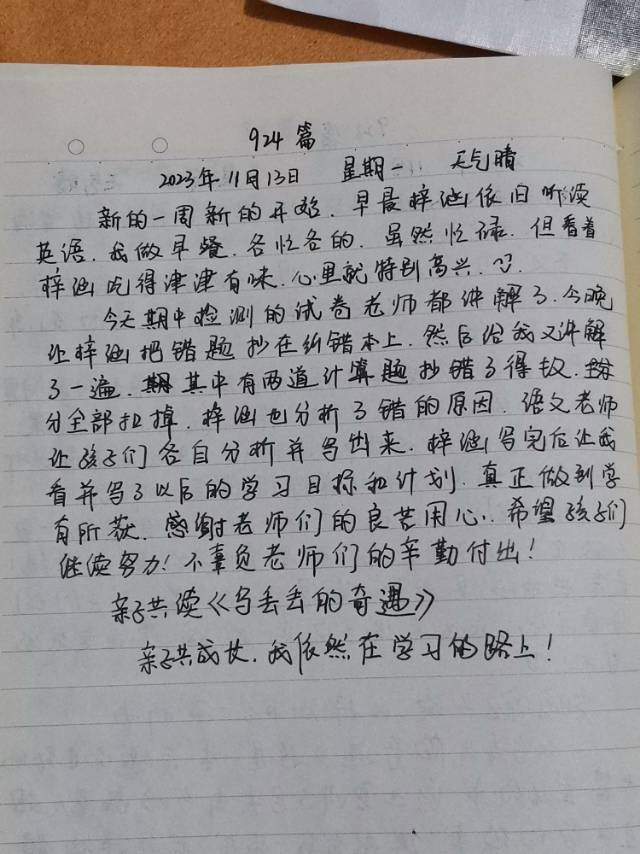 924篇
2023年11月13日 星期一 天气晴
新的一周新的开始.早晨梓涵依旧听读
英语.我做早餐.各忙各的.虽然忙碌.但看着
梓涵吃得津津有味.心里就特别高兴.
今天期中检测的试卷老师都讲解了.今晚
让梓涵把错题抄在纠错本上.然后给我又讲解
了一遍.其中有两道计算题抄错了得数.
分全部扣掉.梓涵也分析了错的原因.语文老师
让孩子们各自分析并写出来.梓涵写完后让我
看并写了以后的学习目标和计划.真正做到学
有所获.感谢老师们的良苦用心.希望孩子们
继续努力!不辜负老师们的辛勤付出!
亲子共读《乌丢丢的奇遇》
亲子共成长.我依然在学习的路上!